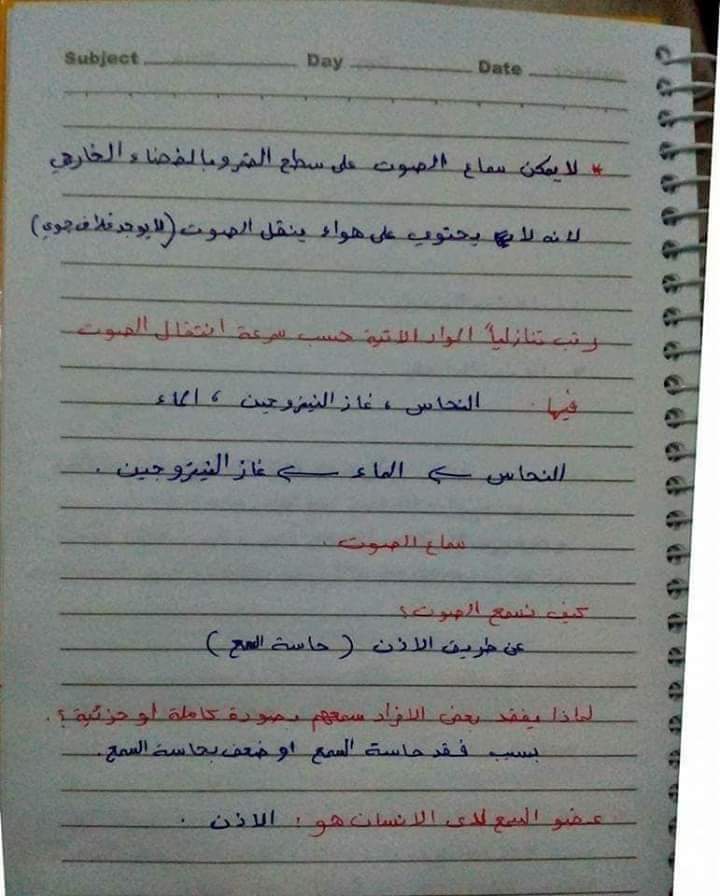 Subject Day Date
* لا يمكن سماع الصوت على سطح القمر وبالفضاء الخارجي
لانه لا يحتوي على هواء ينقل الصوت (لا يوجد غلاف جوي)
رتب تنازلياً المواد الاتية حسب سرعة انتقال الصوت
فيها: النحاس ، غاز النيتروجين ، الماء
النحاس ← الماء ← غاز النيتروجين .
سماع الصوت .
كيف نسمع الصوت؟
عن طريق الاذن (حاسة السمع)
لماذا يفقد بعض الافراد سمعهم بصورة كاملة او جزئية؟.
بسبب فقد حاسة السمع او ضعف بحاسة السمع.
عضو السمع لدى الانسان هو : الاذن .